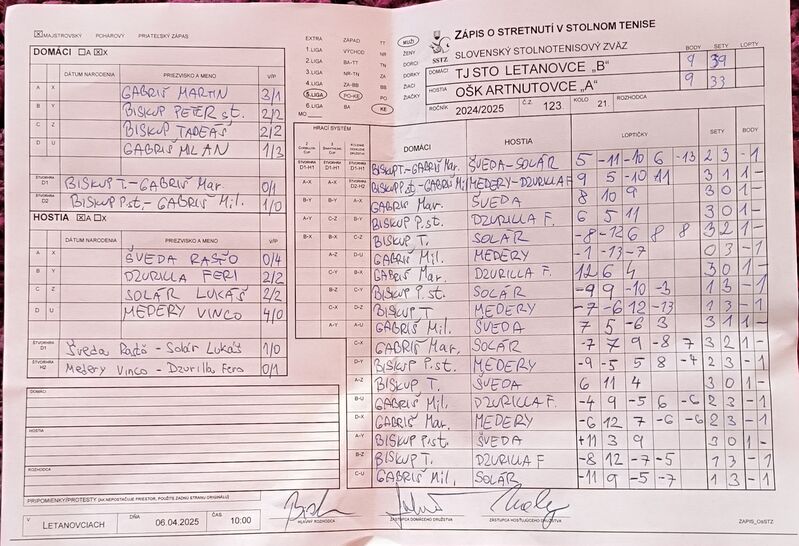 ☒ MAJSTROVSKÝ POHÁROVÝ PRIATEĽSKÝ ZÁPAS
DOMÁCI ☐A ☒X
DÁTUM NARODENIA PRIEZVISKO A MENO V/P
A X GABRIŠ MARTIN 3/1
B Y BISKUP PETER st. 2/2
C Z BISKUP TADEÁŠ 2/2
D U GABRIŠ MILAN 1/3
ŠTVORHRA D1 BISKUP T.-GABRIŠ Mar. 0/1
D2 BISKUP P.st.- GABRIŠ Mil. 1/0
HOSTIA ☒A ☐X
DÁTUM NARODENIA PRIEZVISKO A MENO V/P
A X ŠVEDA RASŤO 0/4
B Y DZURILLA FERI 2/2
C Z SOLÁR LUKÁŠ 2/2
D U MEDERY VINCO 4/0
ŠTVORHRA Šveda Rasťo - Solár Lukáš 1/0
ŠTVORHRA H2 Medery Vinco - Dzurilla Fero 0/1
DOMÁCI
HOSTIA
ROZHODCA
PRIPOMIENKY/PROTESTY (AK NEPOSTAČUJE PRIESTOR, POUŽITE ZADNÚ STRANU ORIGINÁLU)
V LETANOVCIACH DŇA 06.04.2025 ČAS 10:00
EXTRA ZÁPAD TT
1.LIGA VÝCHOD NR
2.LIGA BA-TT TN
3.LIGA NR-TN ZA
4.LIGA ZA-BB BB
5.LIGA PO-KE PO
6.LIGA BA KE
MO
MUŽI
ŽENY
DORCI
DORKY
ŽIACI
ŽIAČKY
SSTZ
ZÁPIS O STRETNUTÍ V STOLNOM TENISE
SLOVENSKÝ STOLNOTENISOVÝ ZVÄZ
BODY SETY LOPTY
DOMÁCI TJ STO LETANOVCE „B“ 9 39
HOSTIA OŠK ARTNUTOVCE „A“ 9 33
ROČNÍK 2024/2025 Č.Z. 123 KOLO 21. ROZHODCA
HRACÍ SYSTÉM DOMÁCI HOSTIA LOPTIČKY SETY BODY
D1-H1 BISKUP T.-GABRIŠ Mar. ŠVEDA-SOLÁR 5 -11 -10 6 -13 2 3 - 1
D2-H2 BISKUP P.st.-GABRIŠ Mil MEDERY-DZURILLA F 9 5 -10 11 3 1 1 -
GABRIŠ Mar. ŠVEDA 8 10 9 3 0 1 -
BISKUP P.st. DZURILLA F. 6 5 11 3 0 1 -
BISKUP T. SOLÁR -8 -12 6 8 8 3 2 1 -
GABRIŠ Mil. MEDERY -1 -13 -7 0 3 - 1
GABRIŠ Mar. DZURILLA F. 12 6 4 3 0 1 -
BISKUP P. st. SOLÁR -9 9 -10 -3 1 3 - 1
BISKUP T MEDERY -7 -6 12 -13 1 3 - 1
A-U GABRIŠ Mil. ŠVEDA 7 5 -6 3 3 1 1 -
C-X GABRIŠ Mar. SOLÁR -7 7 9 -8 7 3 2 1 -
D-Y BISKUP P.st. MEDERY -9 -5 5 8 -7 2 3 - 1
A-Z BISKUP T. ŠVEDA 6 11 4 3 0 1 -
B-U GABRIŠ Mil. DZURILLA F. -4 9 -5 6 -6 2 3 - 1
D-X GABRIŠ Mar. MEDERY -6 12 7 -6 -6 2 3 - 1
A-Y BISKUP P.st. ŠVEDA 11 3 9 3 0 1 -
B-Z BISKUP T. DZURILLA F -8 12 -7 -5 1 3 - 1
C-U GABRIŠ Mil. SOLÁR -11 9 -5 -7 1 3 - 1
HLAVNÝ ROZHODCA ZÁSTUPCA DOMÁCEHO DRUŽSTVA ZÁSTUPCA HOSŤUJÚCEHO DRUŽSTVA ZAPIS_OsSTZ